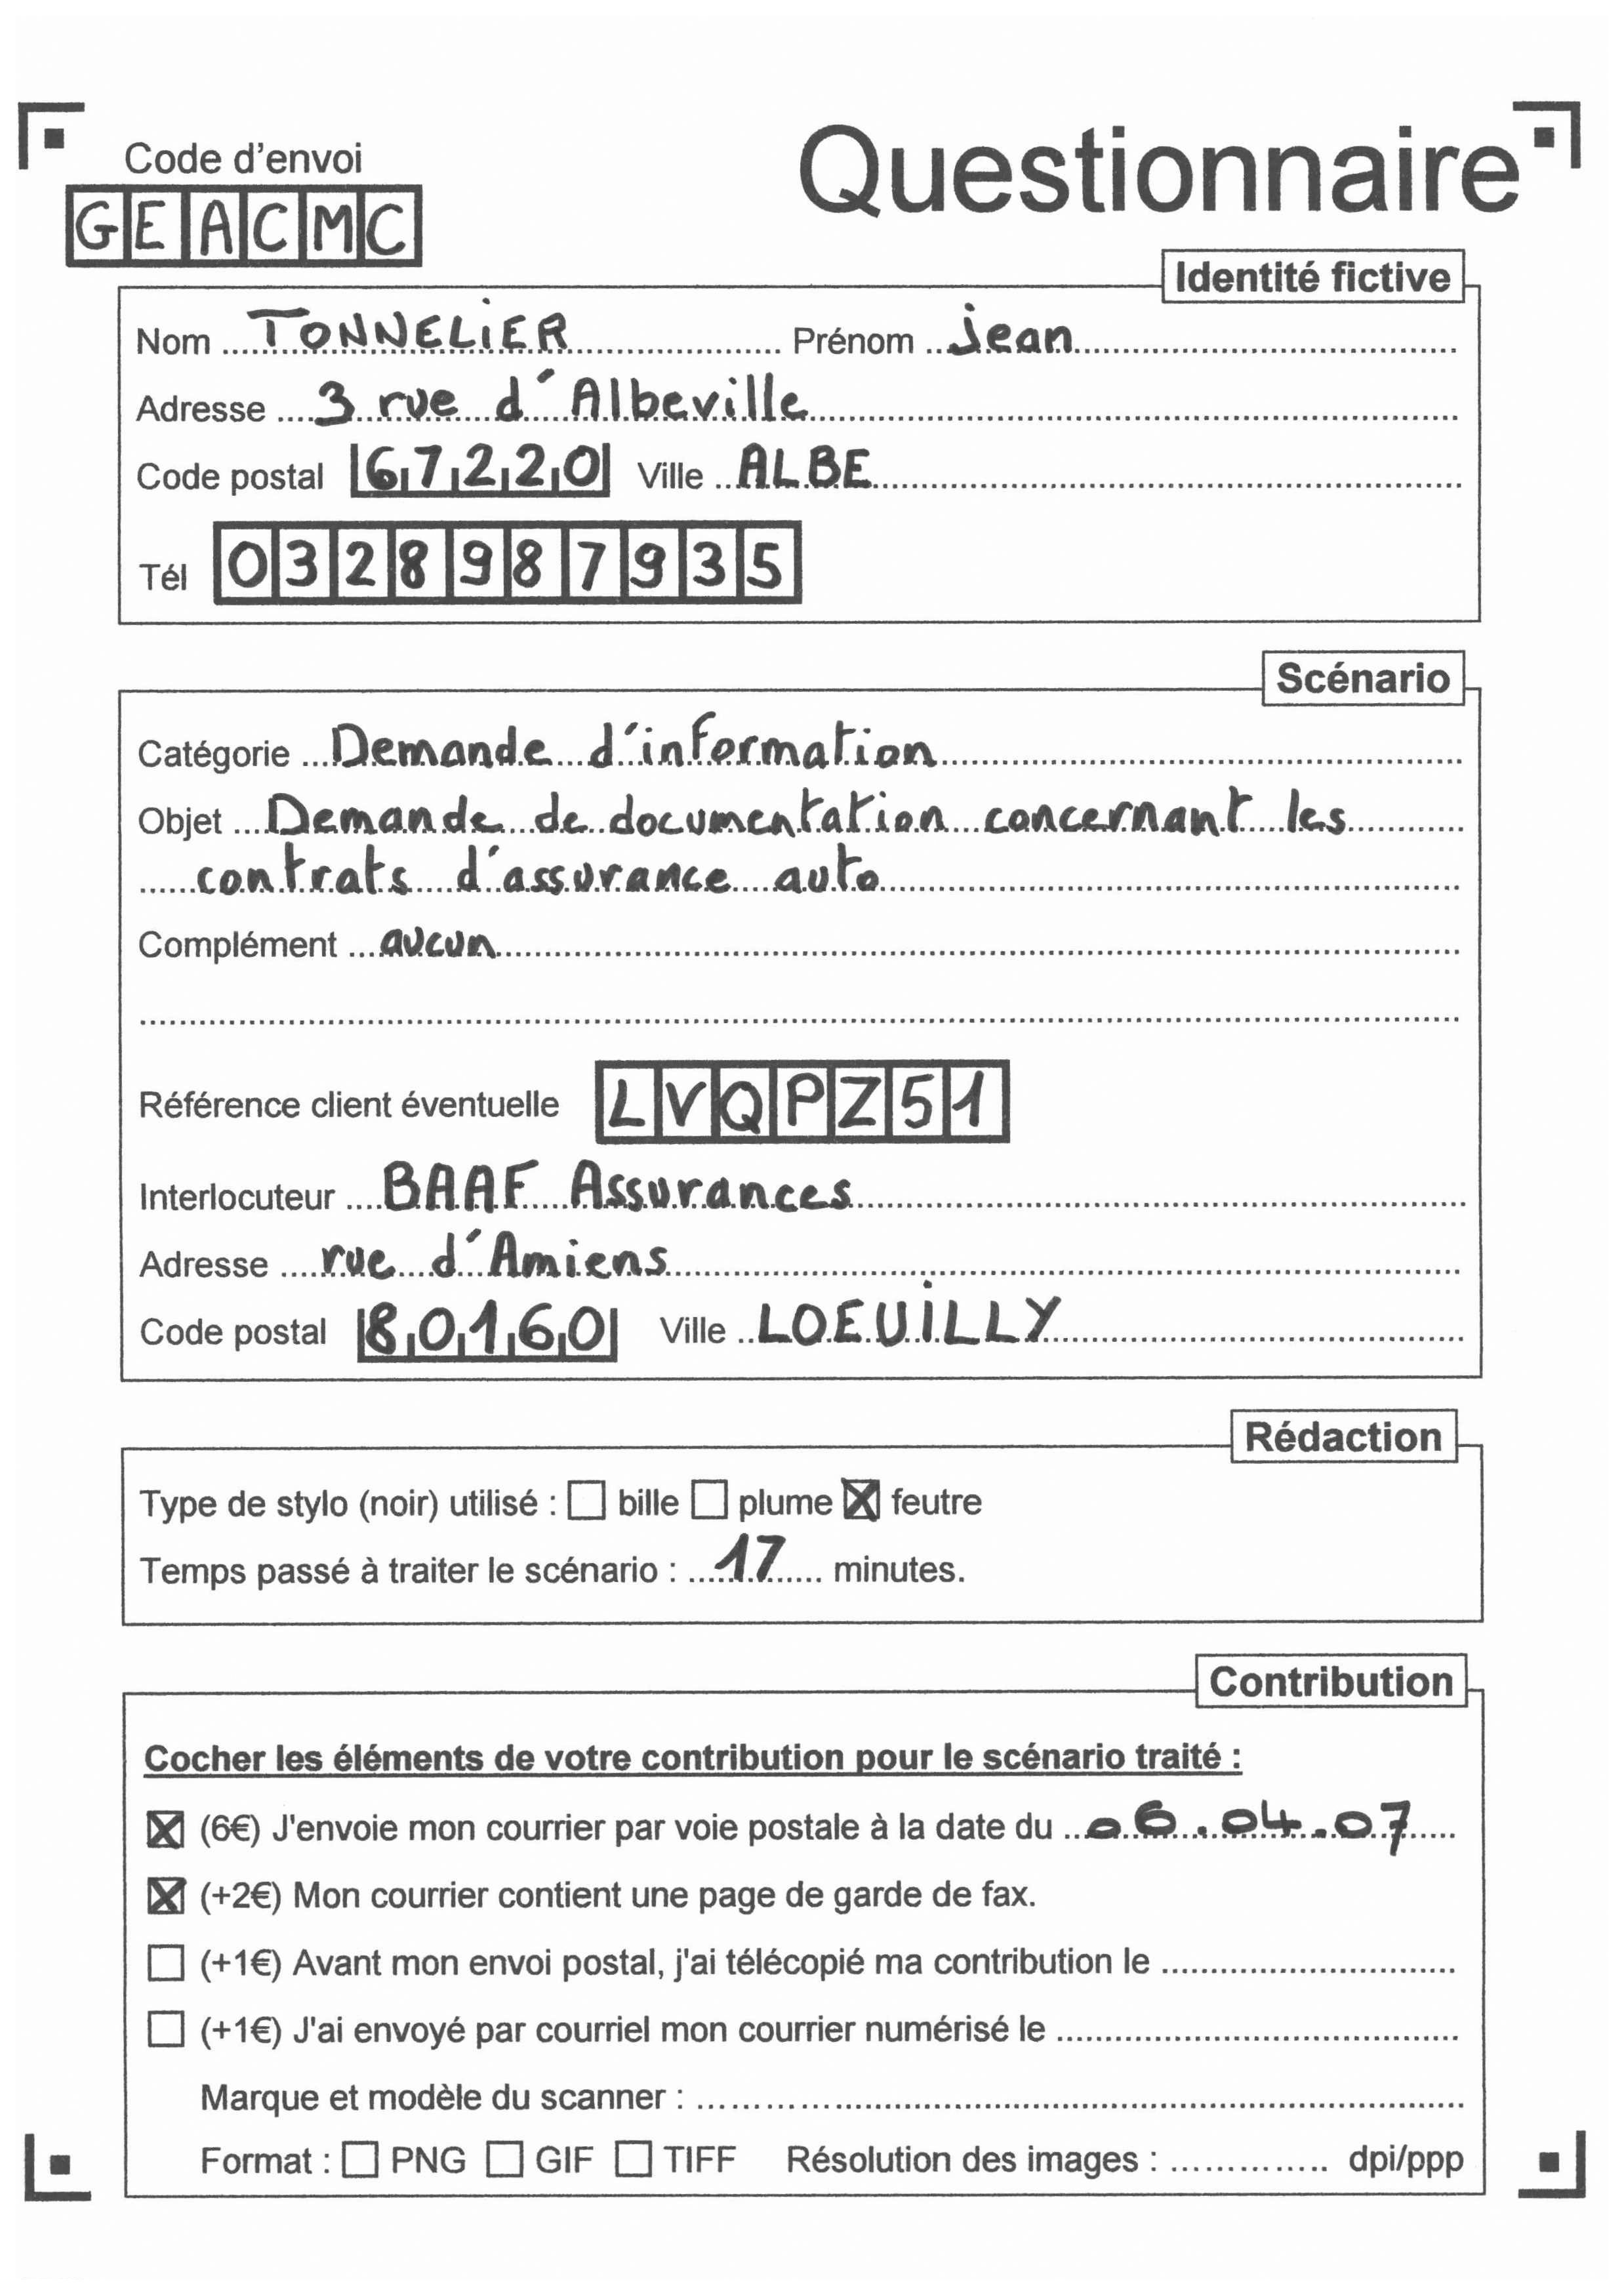 Code d'envoi
GEACMC
Questionnaire
Identité fictive
Nom TONNELIER Prénom jean
Adresse 3 rue d'Albeville
Code postal 67220 Ville ALBE
Tél 0328987935
Scénario
Catégorie Demande d'information
Objet Demande de documentation concernant les
contrats d'assurance auto
Complément aucun
Référence client éventuelle LVQPZ51
Interlocuteur BAAF Assurances
Adresse rue d'Amiens
Code postal 80160 Ville LOEUILLY
Rédaction
Type de stylo (noir) utilisé : ☐ bille ☐ plume ☒ feutre
Temps passé à traiter le scénario : 17 minutes.
Contribution
Cocher les éléments de votre contribution pour le scénario traité :
☒ (6€) J'envoie mon courrier par voie postale à la date du 06.04.07
☒ (+2€) Mon courrier contient une page de garde de fax.
☐ (+1€) Avant mon envoi postal, j'ai télécopié ma contribution le
☐ (+1€) J'ai envoyé par courriel mon courrier numérisé le
Marque et modèle du scanner :
Format : ☐ PNG ☐ GIF ☐ TIFF Résolution des images : dpi/ppp